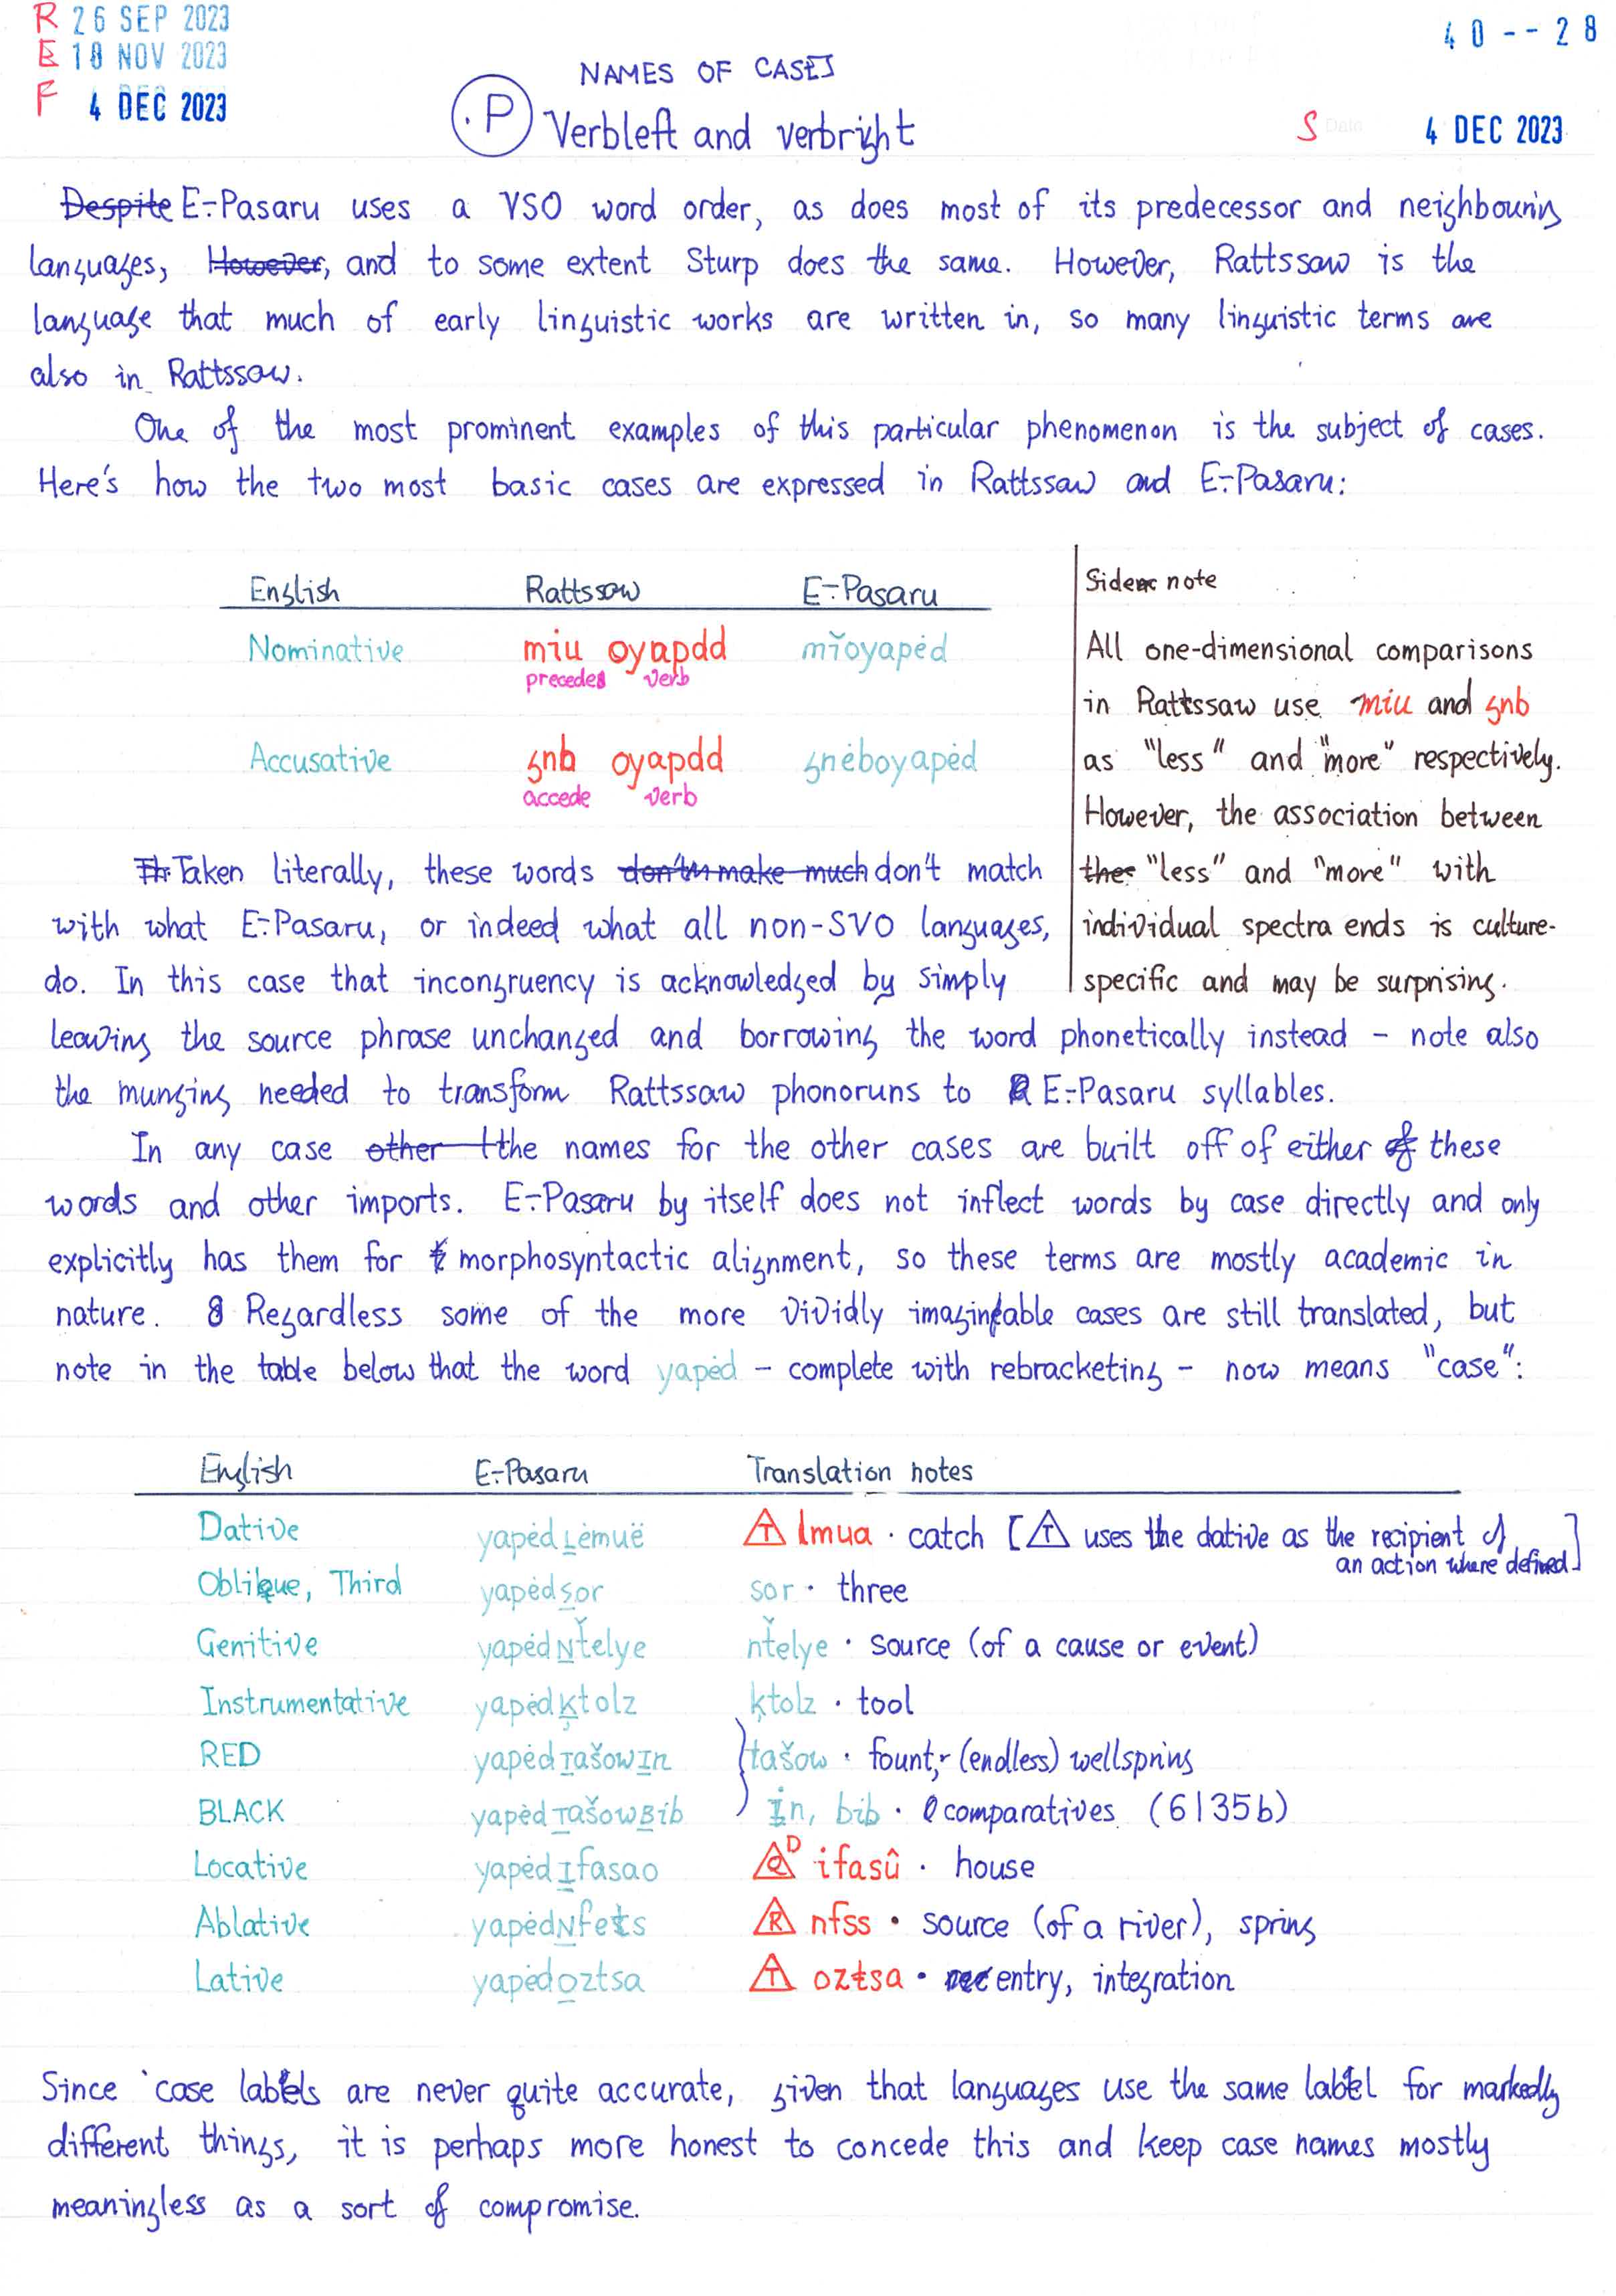 R 26 SEP 2023
E 18 NOV 2023
F 4 DEC 2023
40--28
NAMES OF CASES
.P Verbleft and verbright
S Date 4 DEC 2023
Despite E-Pasaru uses a VSO word order, as does most of its predecessor and neighbouring
languages, However, and to some extent Sturp does the same. However, Rattssaw is the
language that much of early linguistic works are written in, so many linguistic terms are
also in Rattssaw.
One of the most prominent examples of this particular phenomenon is the subject of cases.
Here's how the two most basic cases are expressed in Rattssaw and E-Pasaru:
English Rattssaw E-Pasaru
Nominative miu oyapdd mǐoyapėd
precedes verb
Accusative gnb oyapdd gnėboyapėd
accede verb
Side note
All one-dimensional comparisons
in Rattssaw use miu and gnb
as "less" and "more" respectively.
However, the association between
the "less" and "more" with
individual spectra ends is culture-
specific and may be surprising.
Th Taken literally, these words don't make much don't match
with what E-Pasaru, or indeed what all non-SVO languages,
do. In this case that incongruency is acknowledged by simply
leaving the source phrase unchanged and borrowing the word phonetically instead - note also
the munging needed to transform Rattssaw phonoruns to E-Pasaru syllables.
In any case other the names for the other cases are built off of either of these
words and other imports. E-Pasaru by itself does not inflect words by case directly and only
explicitly has them for morphosyntactic alignment, so these terms are mostly academic in
nature. Regardless some of the more vividly imaginable cases are still translated, but
note in the table below that the word yapėd - complete with rebracketing - now means "case":
English E-Pasaru Translation notes
Dative yapėdLėmuë T lmua · catch [T uses the dative as the recipient of
an action where defined]
Oblique, Third yapėdsor sor · three
Genitive yapėdNťelye nťelye · source (of a cause or event)
Instrumentative yapėdķtolz ķtolz · tool
RED yapėdTašowIn tašow · fount, (endless) wellspring
BLACK yapėdTašowBib In, bib · comparatives (6135b)
Locative yapėdIfasao D ifasû · house
Ablative yapėdNfets R nfss · source (of a river), spring
Lative yapėdoztsa T oztsa · entry, integration
Since case labels are never quite accurate, given that languages use the same label for markedly
different things, it is perhaps more honest to concede this and keep case names mostly
meaningless as a sort of compromise.